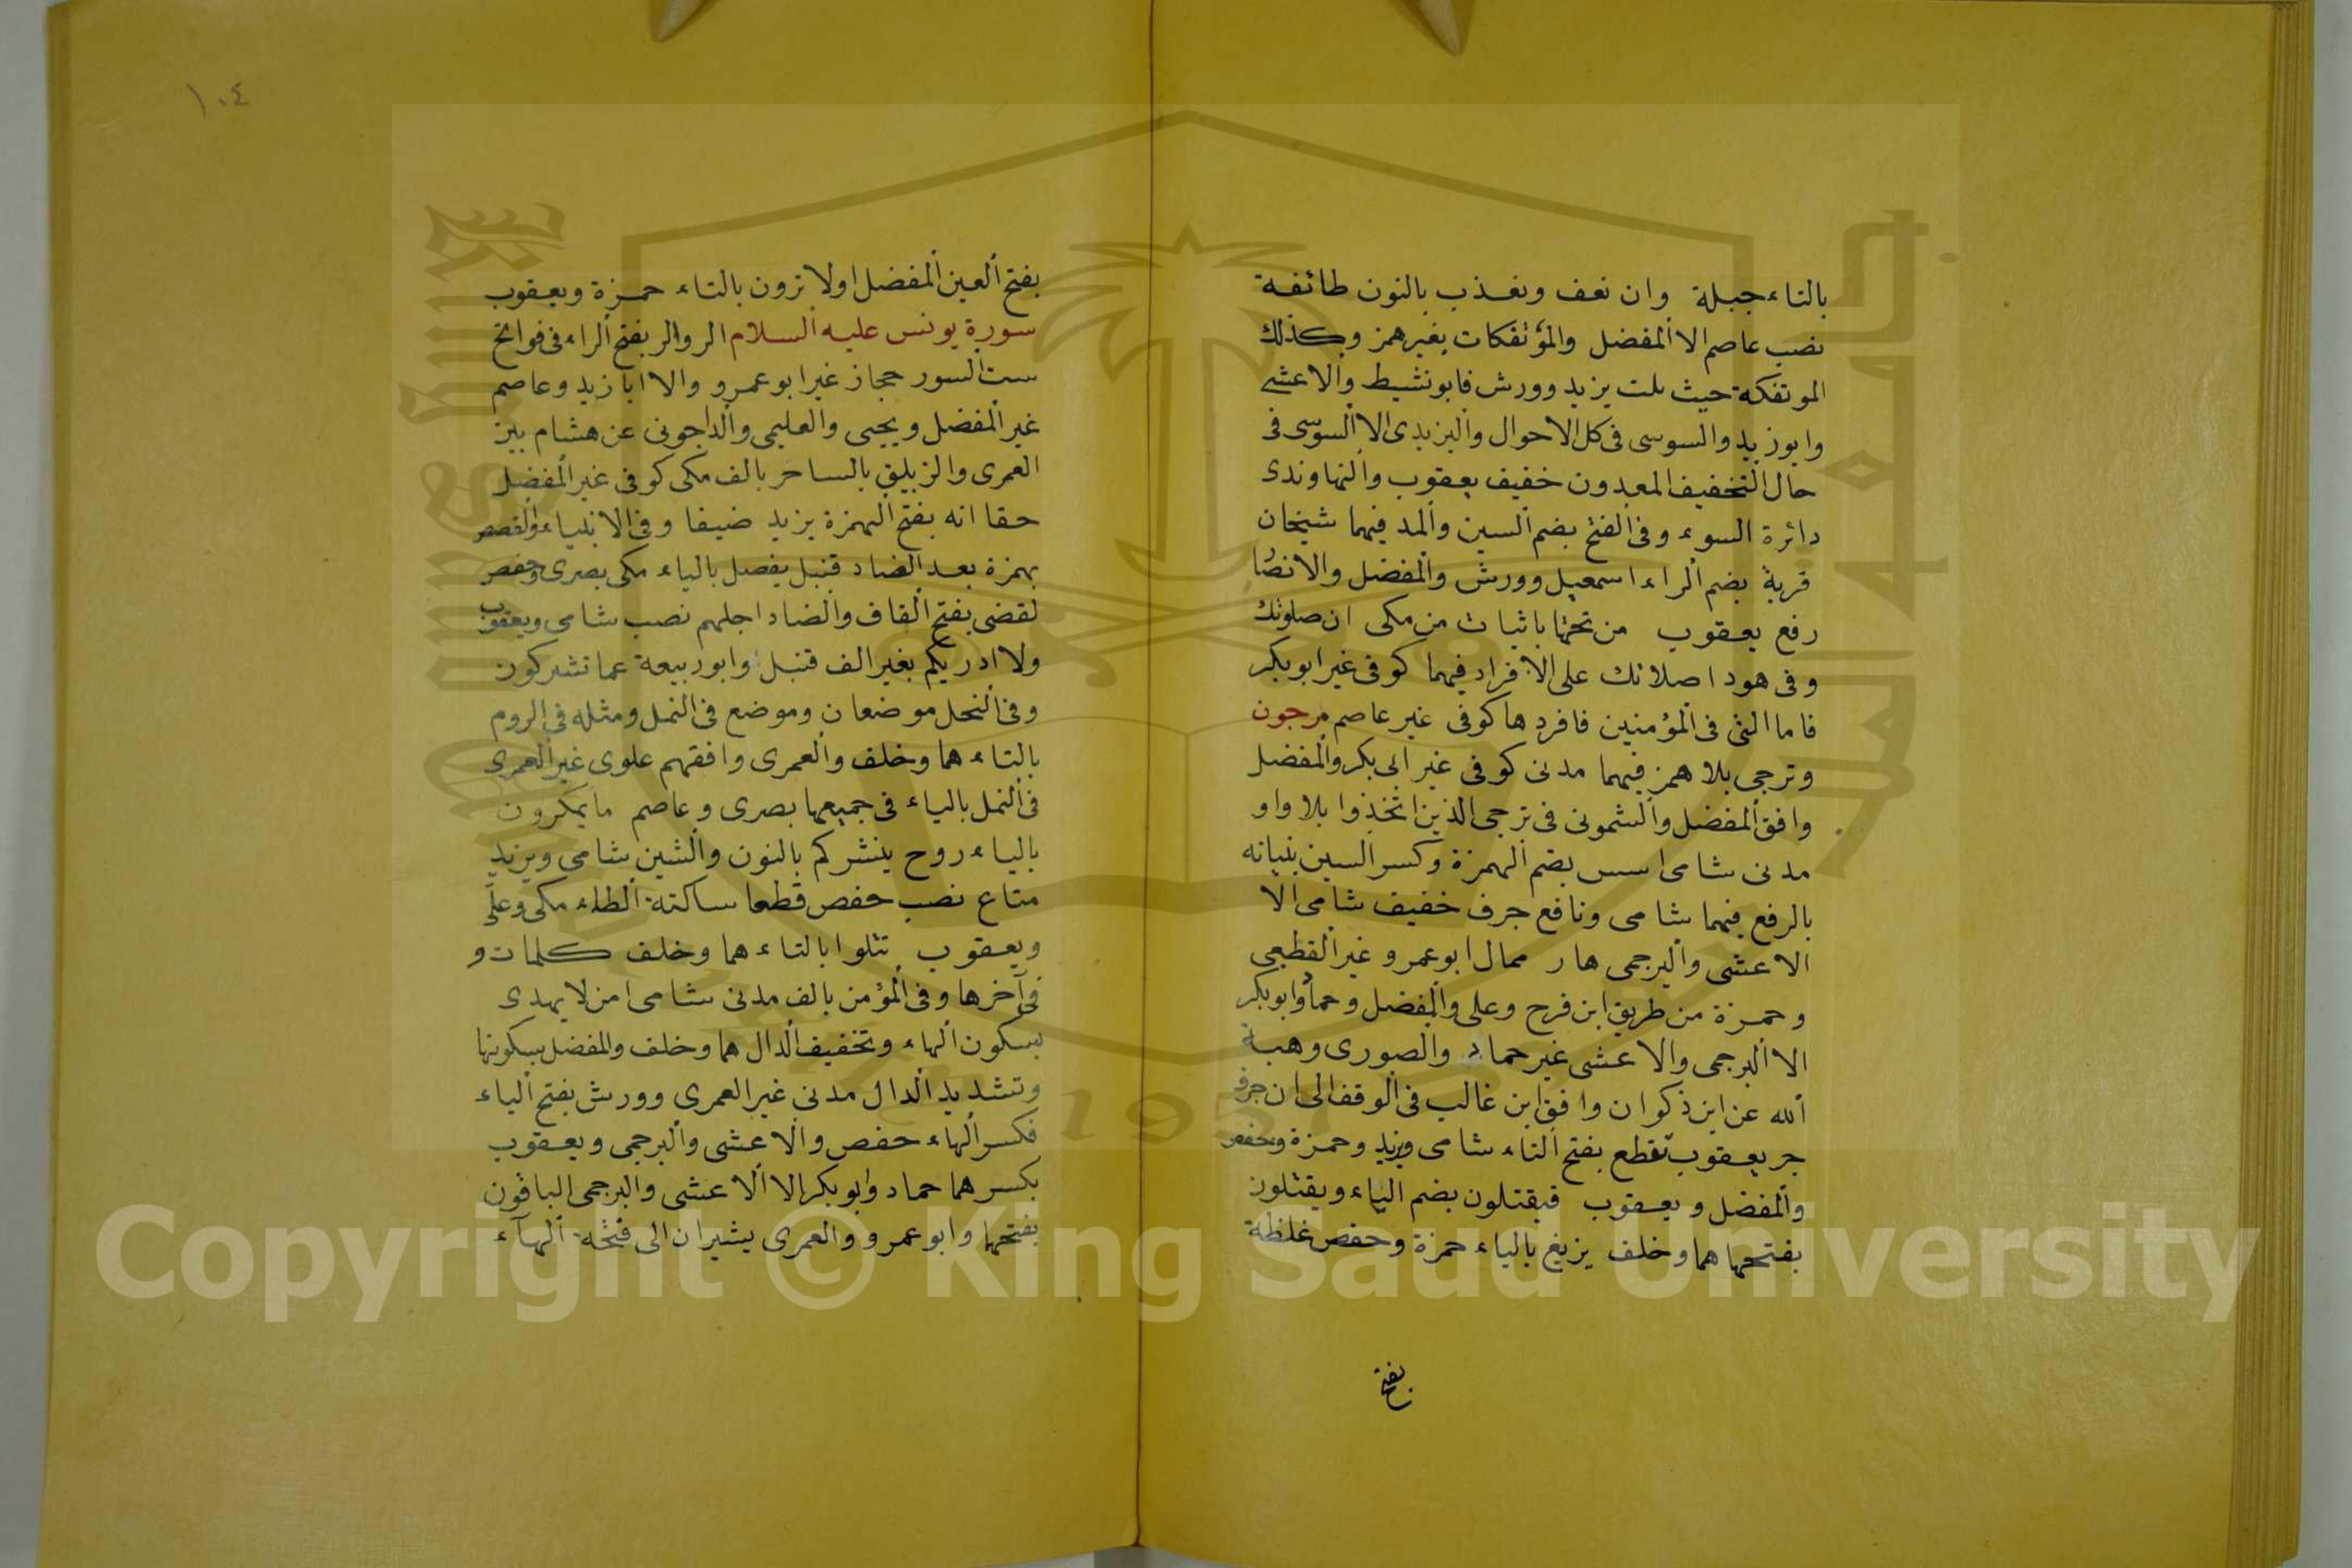 بالتاء جبلة وان نعف ونعذب بالنون طائفة
نصب عاصم الا المفضل والمؤتفكات بغير همز وكذلك
الموتفكة حيث يزيد وورش فابو نشيط والاعشى
وابو زيد والسوسى فى كل الاحوال واليزيدى الا السوسى فى
حال التخفيف المعدون خفيف يعقوب والنهاوندى
دائرة السوء وفى الفتح بضم السين والمد فيهما شيخان
قربة بضم الراء اسمعيل وورش والمفضل والانصا
رفع يعقوب من تحتها باثبات من مكى ان صلوتك
وفى هود اصلاتك على الافراد فيهما كوفى غير ابو بكر
فاما التى فى المؤمنين فافردها كوفى غير عاصم مرجون
وترجى بلا همز فيهما مدنى كوفى غير ابى بكر والمفضل
وافق المفضل والشمونى فى ترجى الذين اتخذوا بلا واو
مدنى شامى اسس بضم الهمزة وكسر السين بنيانه
بالرفع فيهما شامى ونافع جرف خفيف شامى الا
الاعشى والبرجمى هار ممال ابو عمرو غير القطعى
وحمزة من طريق ابن فرح وعلى والمفضل وحماد وابو بكر
الا البرجمى والاعشى غير حماد والصورى وهبة
الله عن ابن ذكوان وافق ابن غالب فى الوقف الى ان حرف
جر يعقوب تقطع بفتح التاء شامى ويزيد وحمزة وحفص
والمفضل ويعقوب فيقتلون بضم الياء ويقتلون
بفتحها هما وخلف يزيغ بالياء حمزة وحفص غلظة
بفتح
١٠٤
بفتح العين المفضل اولا ترون بالتاء حمزة ويعقوب
سورة يونس عليه السلام الر والر بفتح الراء فى فواتح
ست السور حجاز غير ابو عمرو والا ابا زيد وعاصم
غير المفضل ويحيى والعليمى والداجونى عن هشام بين
العمرى والزبليق بالساحر بالف مكى كوفى غير المفضل
حقا انه بفتح الهمزة يزيد ضيفا وفى الانبياء والقصص
بهمزة بعد الضاد قنبل يفصل بالياء مكى بصرى وحفص
لقضى بفتح القاف والضاد اجلهم نصب شامى ويعقوب
ولا ادريكم بغير الف قنبل وابو ربيعة عما تشركون
وفى النحل موضعان وموضع فى النمل ومثله فى الروم
بالتاء هما وخلف والعمرى وافقهم علوى غير العمرى
فى النمل بالياء فى جميعها بصرى وعاصم ما يمكرون
بالياء روح ينشركم بالنون والشين شامى ويزيد
متاع نصب حفص قطعا ساكتة الطاء مكى وعلى
ويعقوب تتلوا بالتاء هما وخلف كلمات و
فى آخرها وفى المؤمن بالف مدنى شامى امن لا يهدى
بسكون الهاء وتخفيف الدال هما وخلف والمفضل بسكونها
وتشديد الدال مدنى غير العمرى وورش بفتح الياء
فكسر الهاء حفص والاعشى والبرجمى ويعقوب
بكسرهما حماد وابو بكر الا الاعشى والبرجمى الباقون
بفتحها وابو عمرو والعمرى يشيران الى فتحة الهآء
Copyright © King Saud University
1957